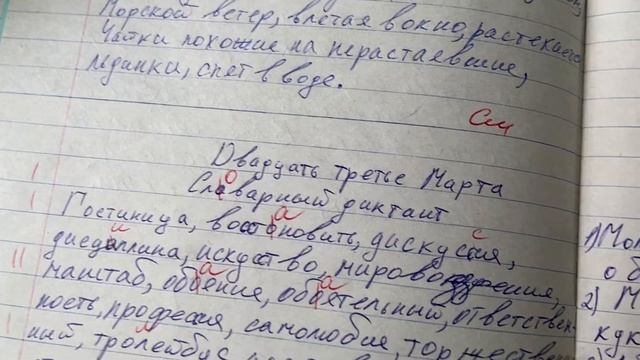 Морской ветер, влетая в окно, растекаетс
Чайки похожие на нерастаявшие,
льдинки, спят в воде.
См
Двадцать третье Марта
Славарный диктант
Гостиница, востоновить, дискусия,
дисциплина, искуство,
маштаб, обоение, обоятельный, ответствен-
ность, професия, самолюбие, торжествен
ный, тролейбус
1) Мол
об
2) М
кук